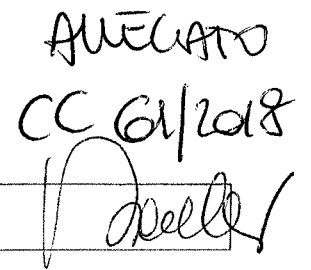 ALLEGATO
CC 61/2018